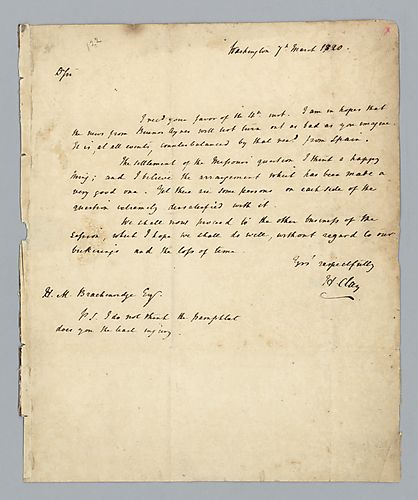 122
Washington 7th March 1820.
D Sir
I recd your favor of the 4th inst. I am in hopes that
the news from Buenos Ayres will not turn out as bad as you imagine.
It is, at all events, counterbalanced by that recd from Spain.
The settlement of the Missouri question I think a happy
thing; and I believe the arrangement which has been made a
very good one. Yet there are some persons on each side of the
question extremely dissatisfied with it.
We shall now proceed to the other business of the
Session, which I hope we shall do well, without regard to our
bickerings and the loss of time
Yrs respectfully
H Clay
H. M. Brackenridge Esq.
P.S. I do not think the pamphlet
does you the least injury.